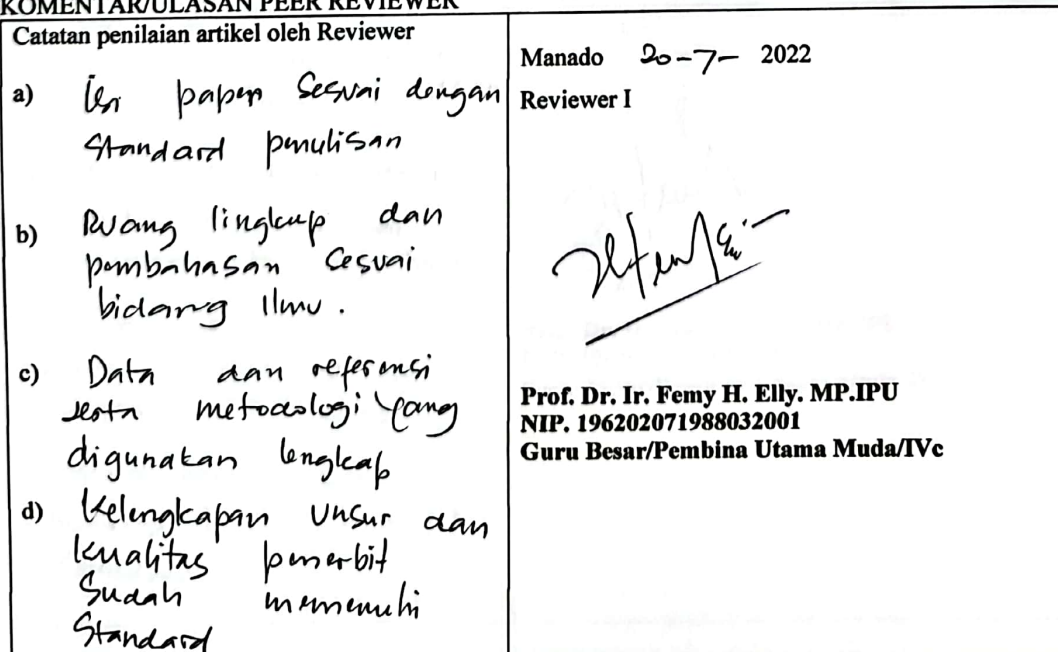 KOMENTAR/ULASAN PEER REVIEWER
Catatan penilaian artikel oleh Reviewer
a) Isi paper Sesuai dengan
Standard penulisan
b) Ruang lingkup dan
pembahasan Sesuai
bidang Ilmu.
c) Data dan referensi
serta metodologi yang
digunakan lengkap
d) Kelengkapan Unsur dan
kualitas penerbit
Sudah memenuhi
Standard
Manado 20-7- 2022
Reviewer I
Prof. Dr. Ir. Femy H. Elly. MP.IPU
NIP. 196202071988032001
Guru Besar/Pembina Utama Muda/IVc